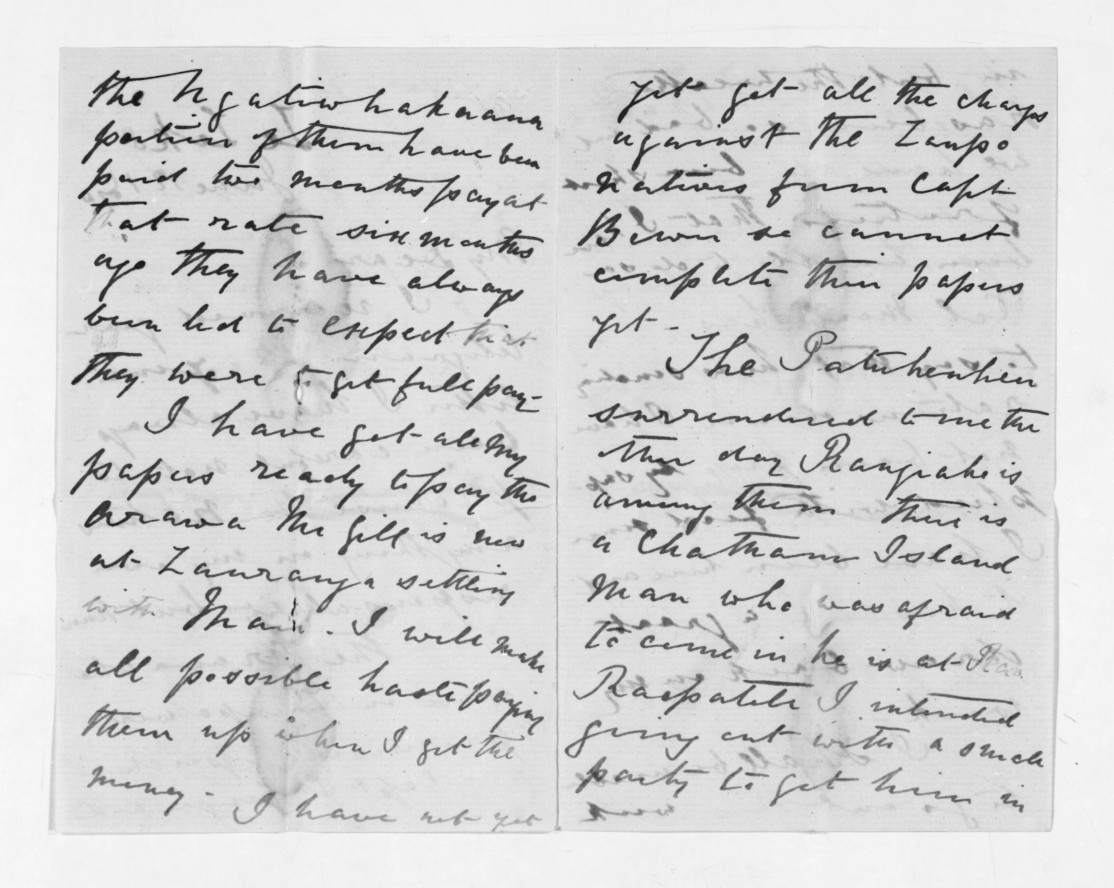 the Ngatiwhakaaua
portion of them have been
paid two months pay at
that rate six months
ago they have always
been led to expect that
they were to get full pay-
I have got all my
papers ready to pay the
Arawa Mr Gill is now
at Tauranga settling
with Mair. I will make
all possible haste paying
them up when I get the
money - I have not yet
yet got all the charges
against the Taupo
natives from Capt
Bower so cannot
complete their papers
yet -
The Patuheuheu
surrendered to me the
other day Rangiahe is
among them there is
a Chatham Island
Man who was afraid
to come in he is at
I intended
going out with a small
party to get him in